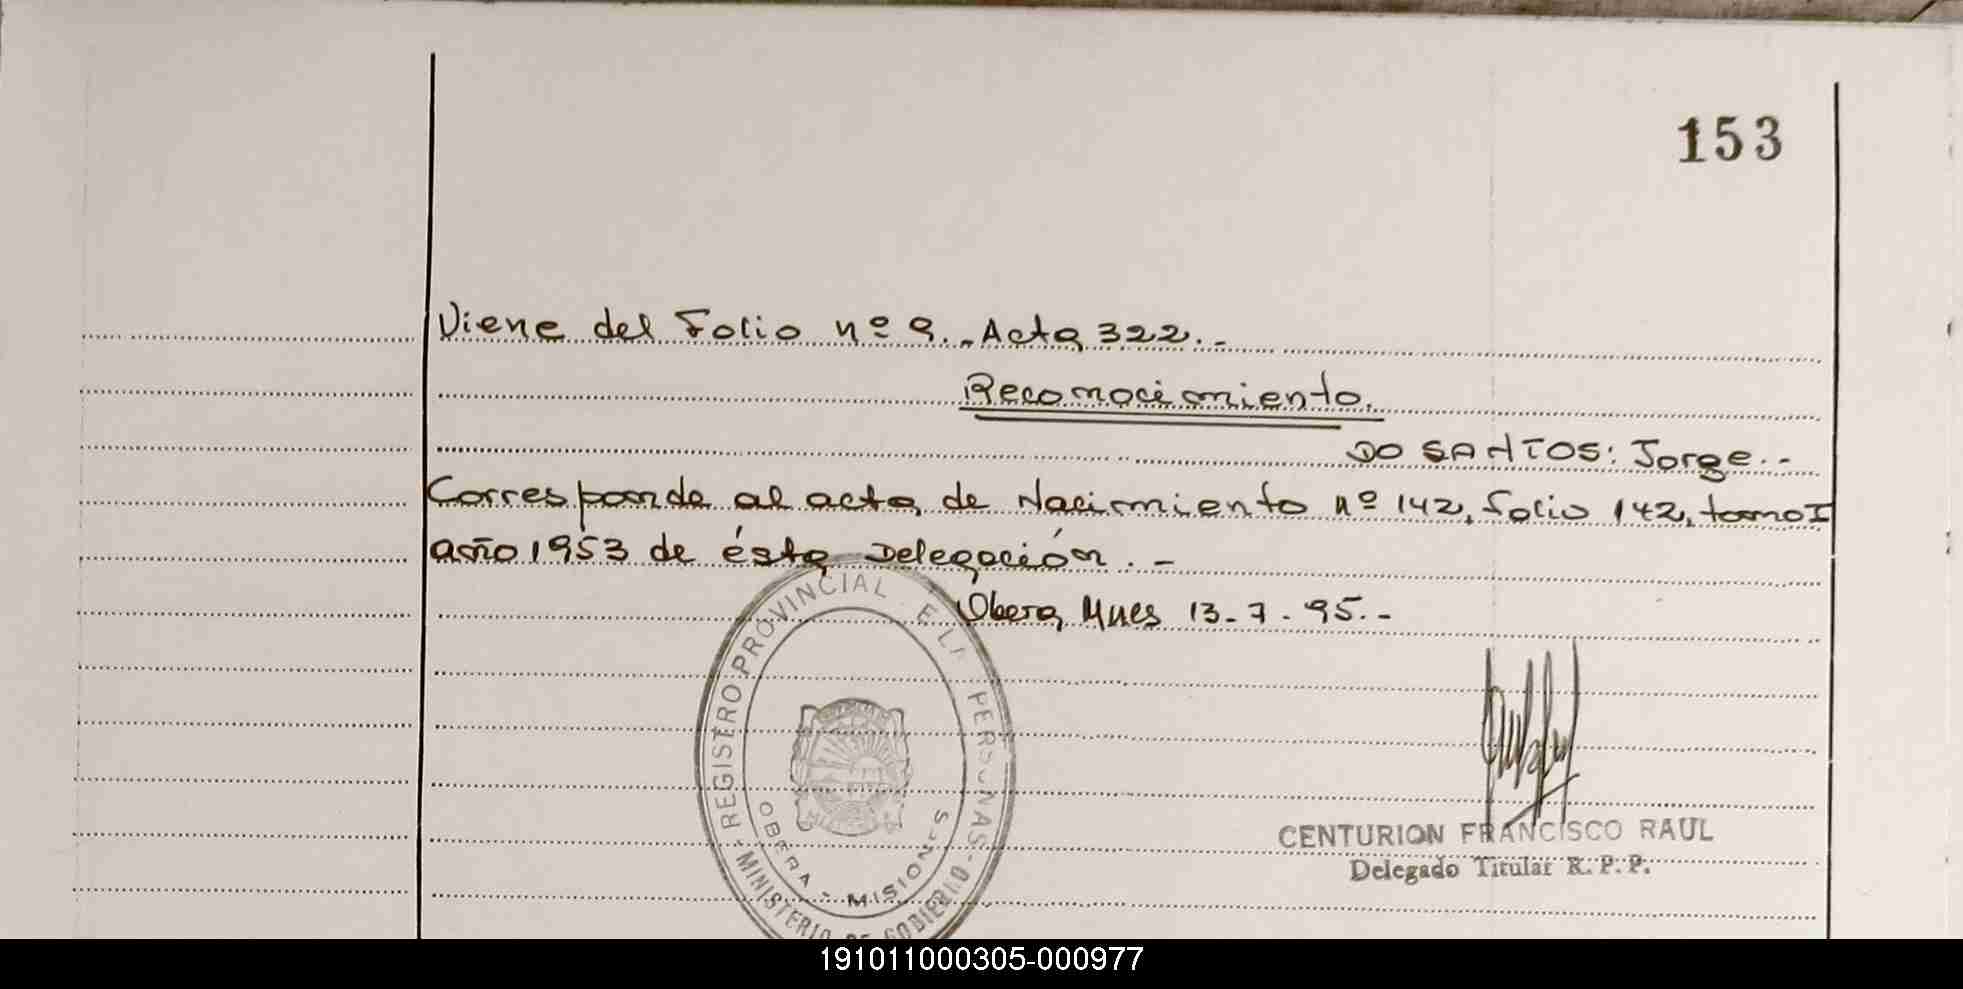 153
Viene del Folio nº 9.. Acta 322.-
Reconocimiento.
DO SANTOS: Jorge.-
Corresponde al acta de Nacimiento nº 142, folio 142, tomo I
año 1953 de ésta Delegación.-
Obera, Mnes 13-7-95.-
REGISTRO PROVINCIAL E LA PERSONAS
OBERA - MISIONES
MINISTERIO DE GOBIERNO
CENTURION FRANCISCO RAUL
Delegado Titular R. P. P.
191011000305-000977